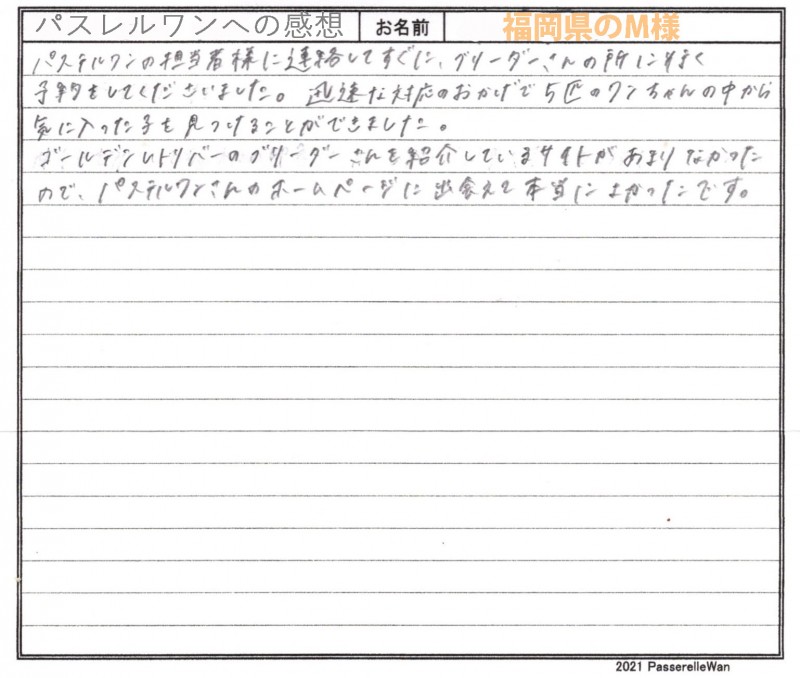 パスレルワンへの感想 お名前 福岡県のM様
パステルワンの担当者様に連絡してすぐに、ブリーダーさんの所に行く
予約をしてくださいました。迅速な対応のおかげで5匹のワンちゃんの中から
気に入った子を見つけることができました。
ゴールデンレトリバーのブリーダーさんを紹介しているサイトがあまりなかった
ので、パステルワンさんのホームページに出会えて本当によかったです。
2021 PasserelleWan